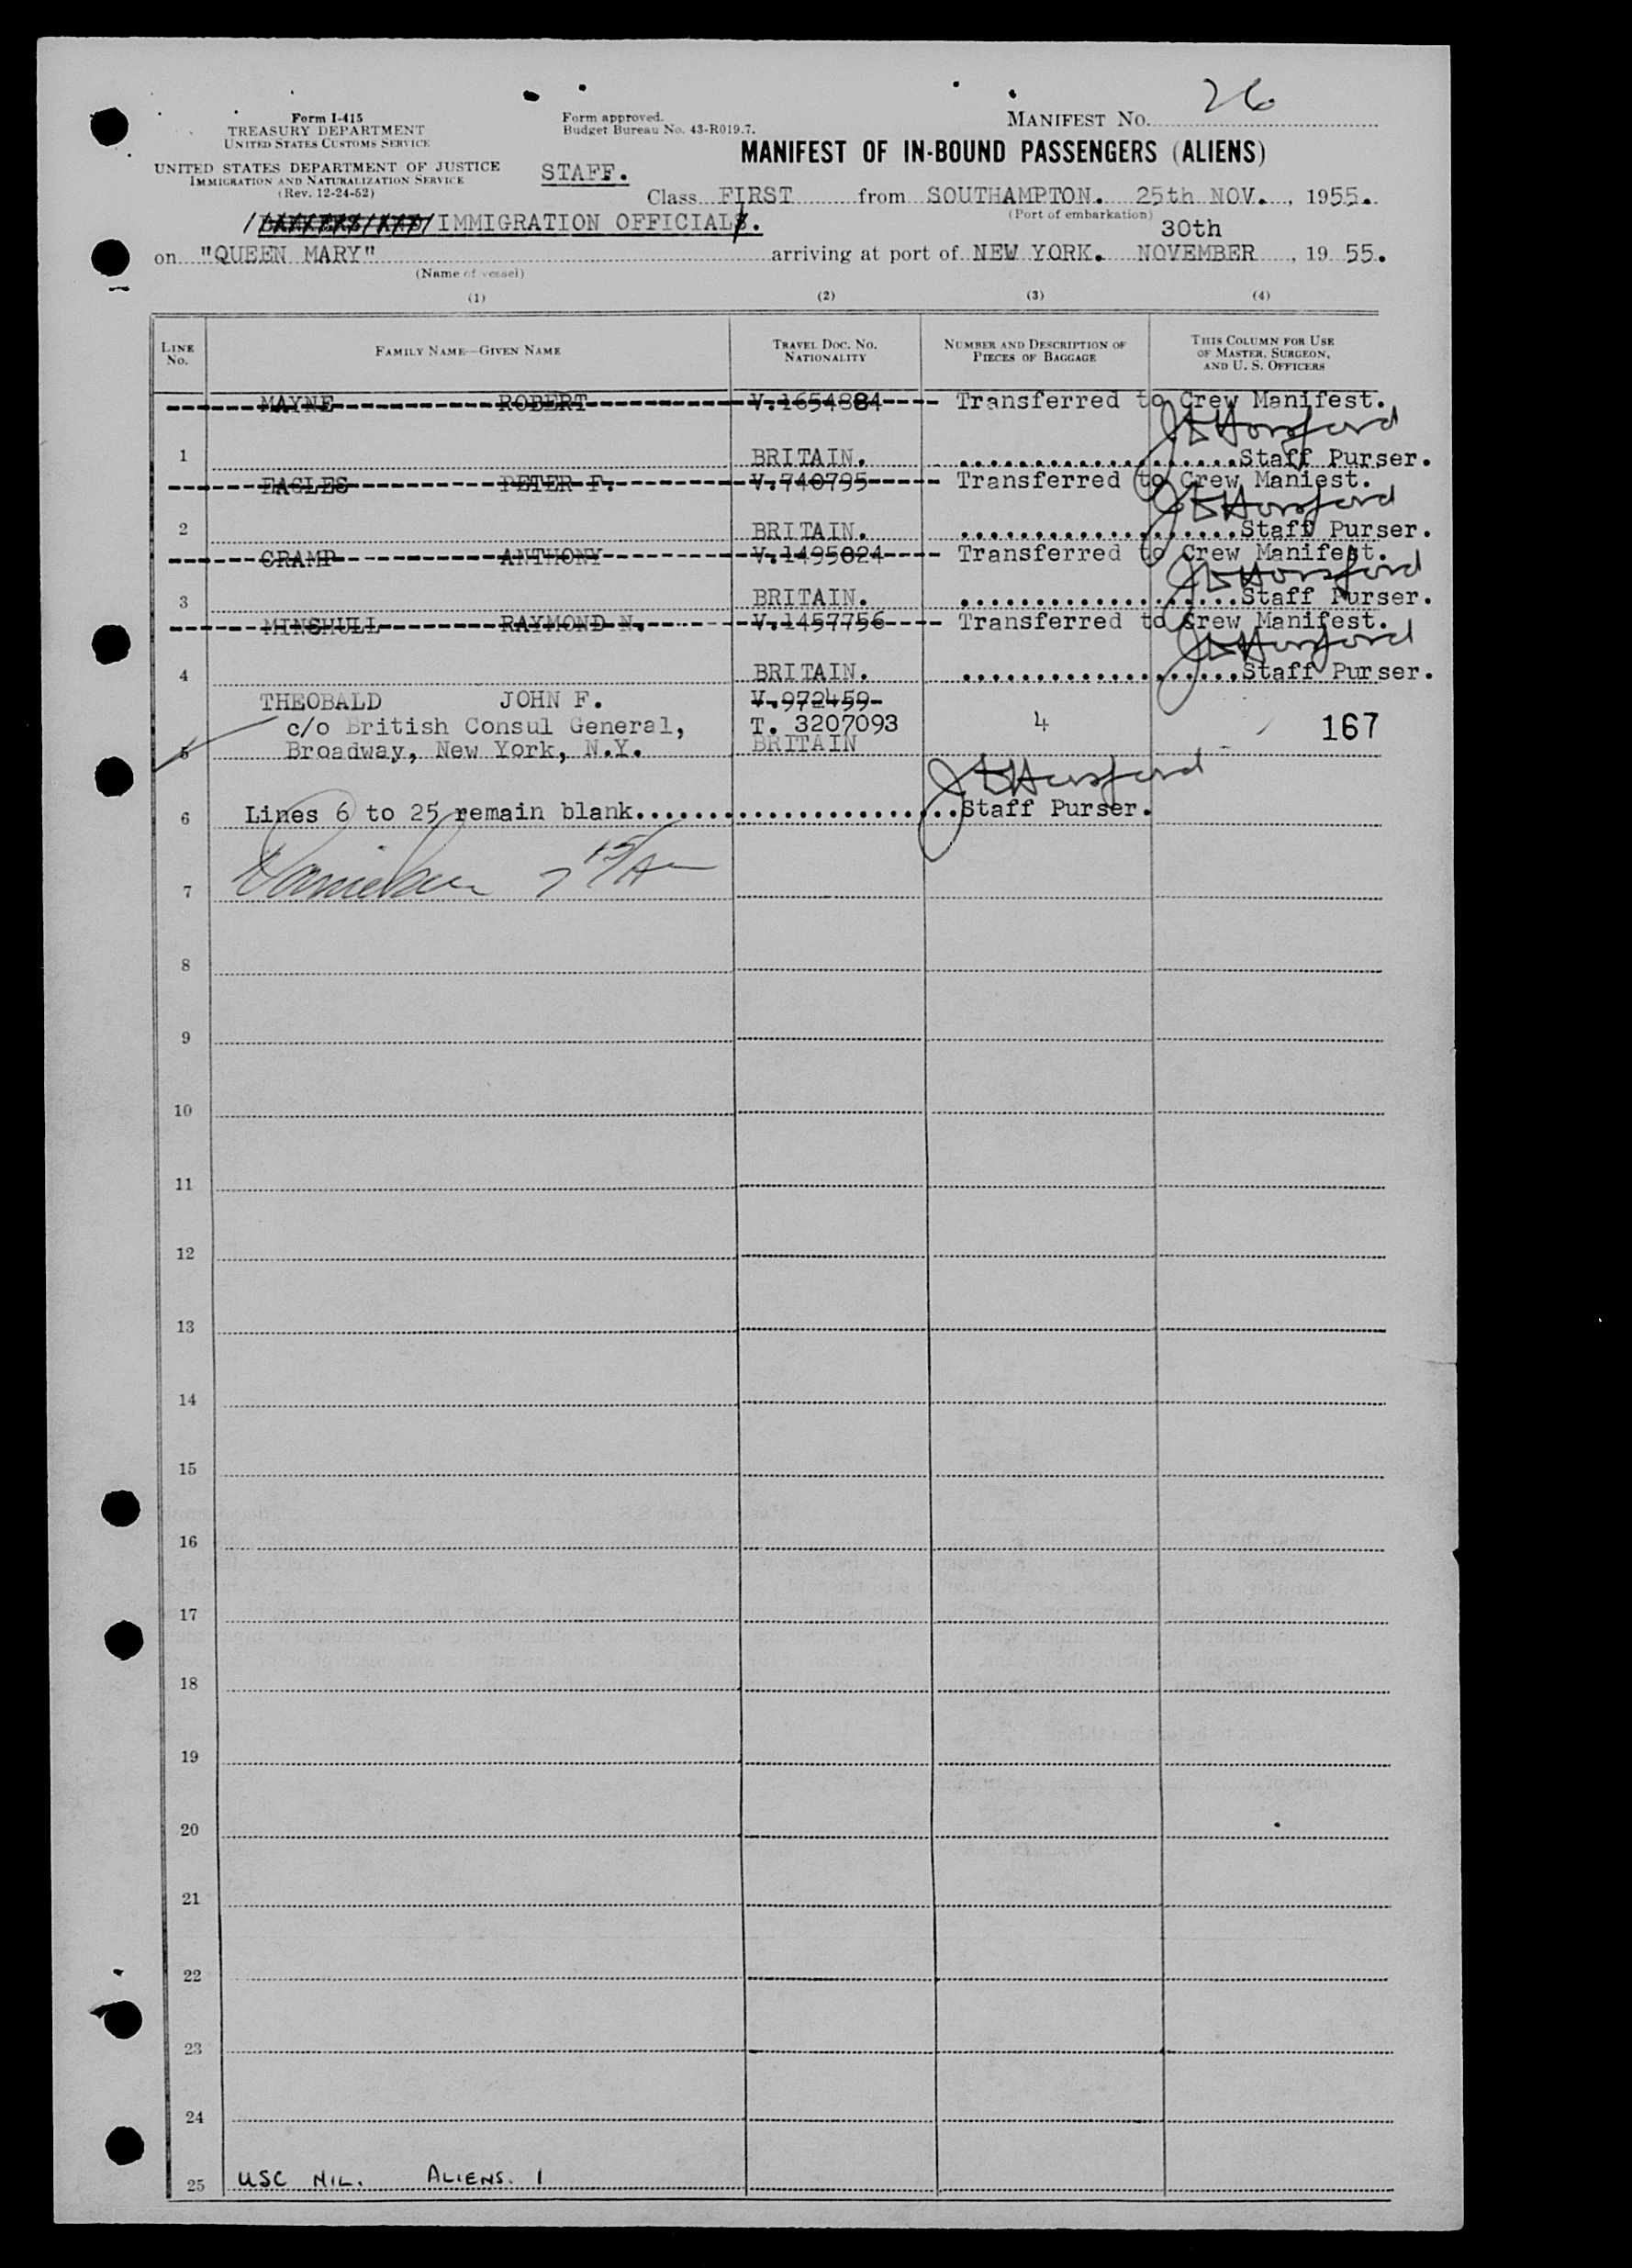 26
Form I-415
TREASURY DEPARTMENT
UNITED STATES CUSTOMS SERVICE
Form approved.
Budget Bureau No. 43-R019.7.
MANIFEST NO.
UNITED STATES DEPARTMENT OF JUSTICE
IMMIGRATION AND NATURALIZATION SERVICE
(Rev. 12-24-52)
STAFF.
MANIFEST OF IN-BOUND PASSENGERS (ALIENS)
Class FIRST from SOUTHAMPTON. 25th NOV., 1955.
(Port of embarkation)
IMMIGRATION OFFICIALS.
30th
on "QUEEN MARY" arriving at port of NEW YORK. NOVEMBER, 19 55.
(Name of vessel)
(1) (2) (3) (4)
LINE No. FAMILY NAME—GIVEN NAME TRAVEL DOC. NO. NATIONALITY NUMBER AND DESCRIPTION OF PIECES OF BAGGAGE THIS COLUMN FOR USE OF MASTER, SURGEON, AND U. S. OFFICERS
MAYNE ROBERT V.1654884 Transferred to Crew Manifest.
1 BRITAIN. Staff Purser.
EAGLES PETER F. V.740795 Transferred to Crew Maniest.
2 BRITAIN. Staff Purser.
CRAMP ANTHONY V.1495824 Transferred to Crew Manifest.
3 BRITAIN. Staff Purser.
MINSHULL RAYMOND N. V.1457756 Transferred to Crew Manifest.
4 BRITAIN. Staff Purser.
THEOBALD JOHN F. V.972459
c/o British Consul General, T. 3207093 4 167
5 Broadway, New York, N.Y. BRITAIN
6 Lines 6 to 25 remain blank. Staff Purser.
7
8
9
10
11
12
13
14
15
16
17
18
19
20
21
22
23
24
25 USC NIL. ALIENS. 1